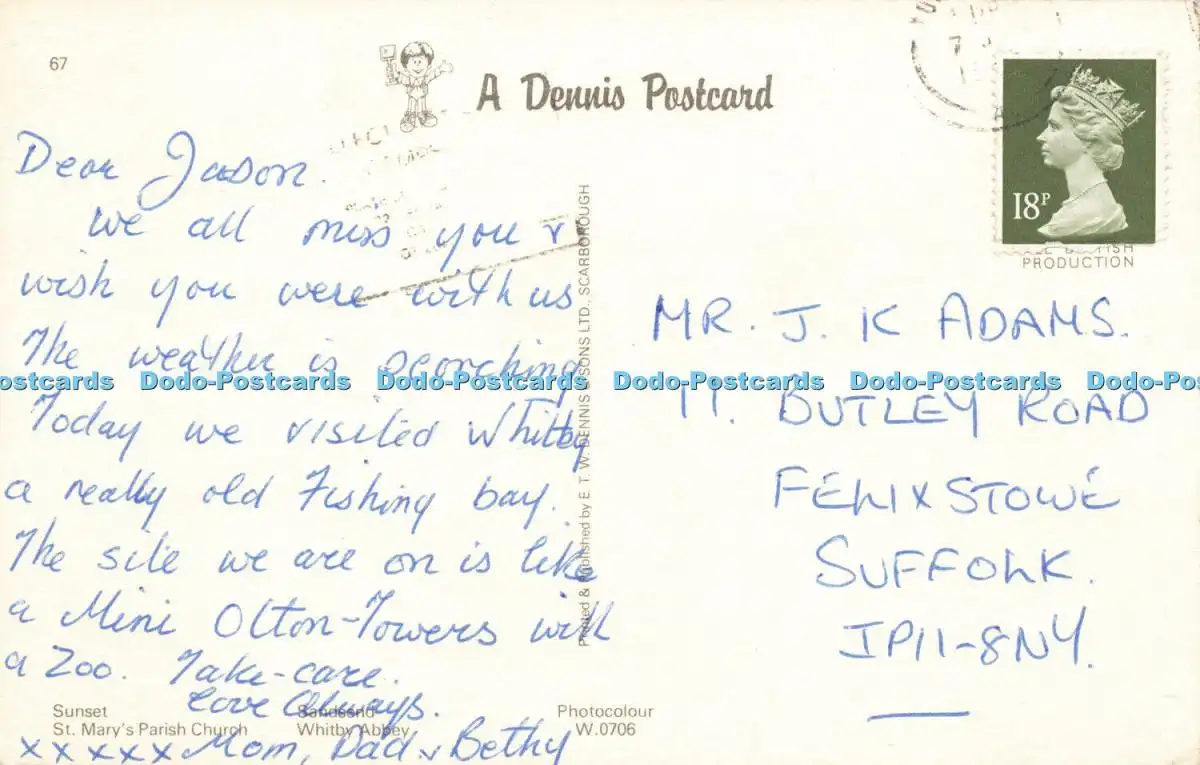 67
A Dennis Postcard
18P
ALL BRITISH
PRODUCTION
Dear Jason.
We all miss you &
wish you were with us
The weather is scorching
Today we visited Whitby
a really old Fishing bay.
The site we are on is like
a Mini Olton-Towers with
a Zoo. Take-care.
Love Always.
xxxxx Mom, Dad & Bethy
Printed & Published by E. T. W. DENNIS & SONS LTD., SCARBOROUGH
MR. J. K ADAMS.
11. BUTLEY ROAD
FELIXSTOWE
SUFFOLK.
IP11-8NY.
Dodo-Postcards Dodo-Postcards Dodo-Postcards Dodo-Postcards Dodo-Postcards
Sunset Sandsend Photocolour
St. Mary's Parish Church Whitby Abbey W.0706